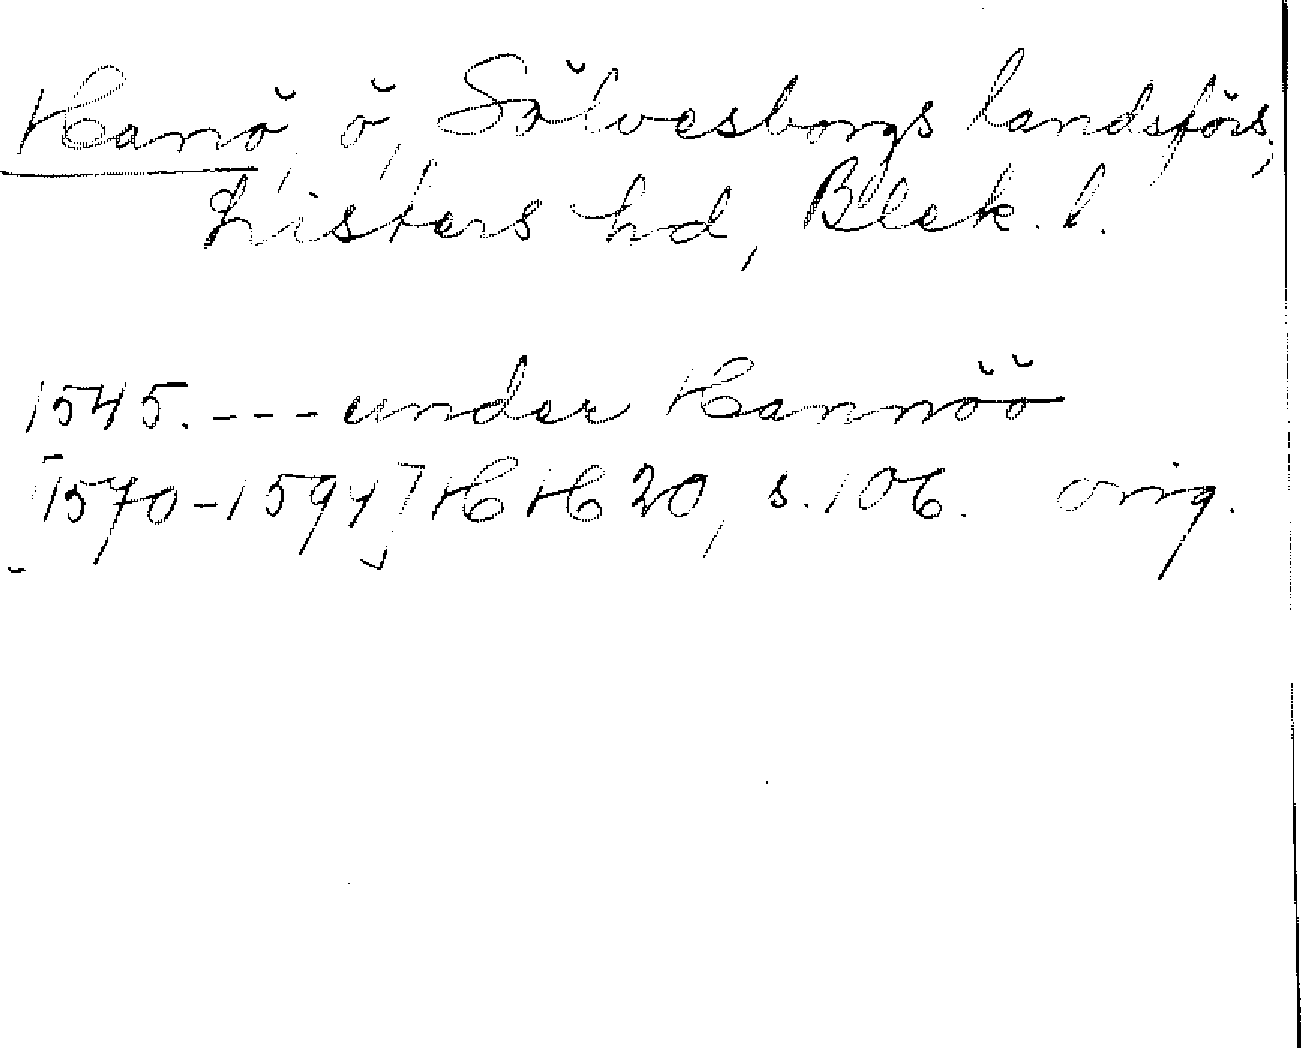 Hanö, ö, Sölvesborgs landsförs,
Listers hd, Blek. l.
1545. --- under Hannöö
[1570-1594] HH 20, s. 106. orig.